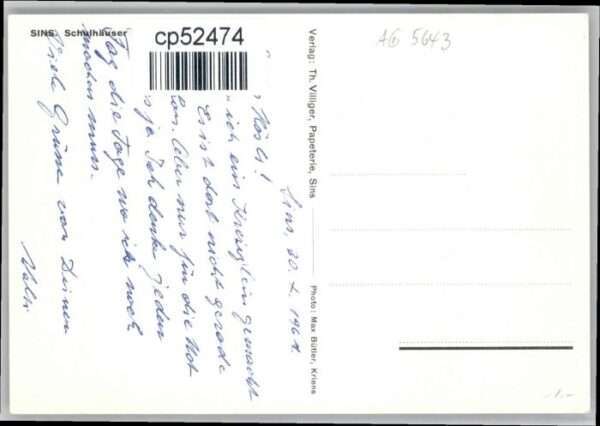 SINS. Schulhäuser
cp52474
AG 5643
Verlag: Th. Villiger, Papeterie, Sins
Photo: Max Bütler, Kriens
Sins, 20. 1961.
ich ein Kreuzlein gemacht
Es ist dort nicht gerade
Aber nur für die Not
ja. Ich denke jeden
Tag die Tage wo ich noch
machen muss.
Viele Grüsse von Deinen
-1.-